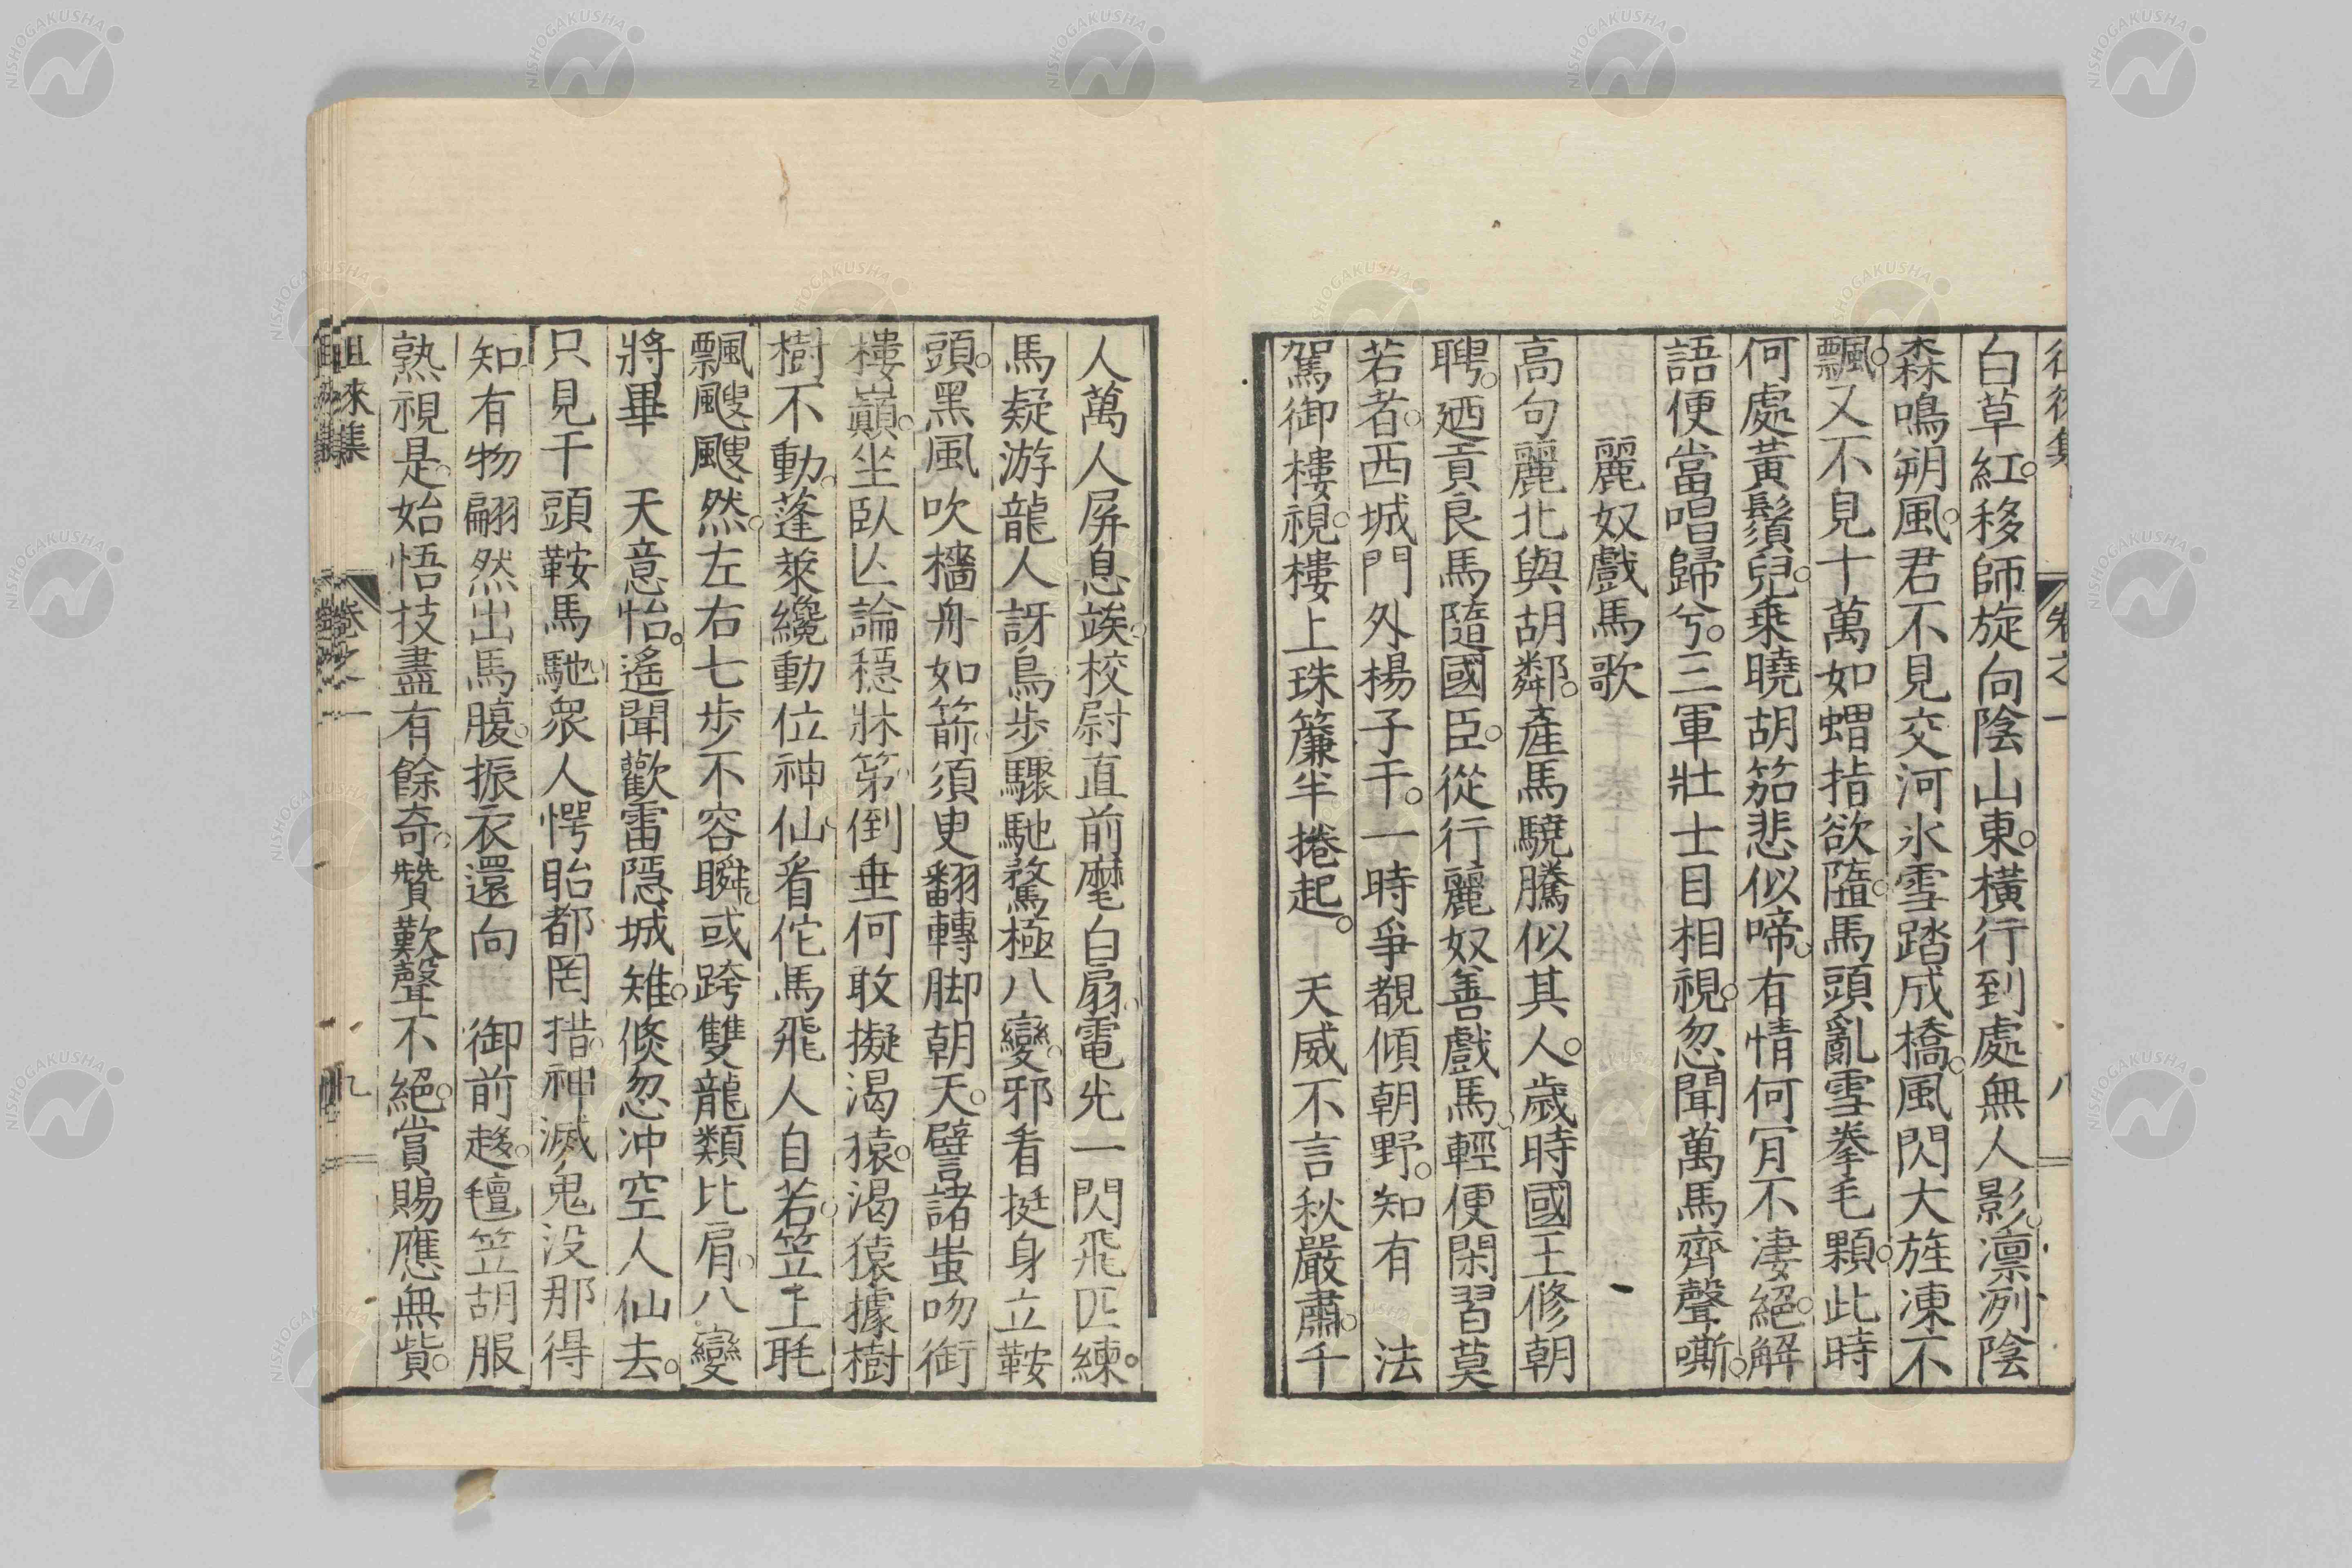 白草紅。移師旋向陰山東。橫行到處無人影。凛冽陰
森鳴朔風。君不見交河氷雪踏成橋。風閃大旌凍不
飄。又不見十萬如蝟指欲隨。馬頭亂雪拳毛顆。此時
何處黃鬚兒。乗曉胡笳悲似啼。有情何肎不凄絕。解
語便當唱歸兮。三軍壯士目相視。忽聞萬馬齊聲嘶。
麗奴戲馬歌
高句麗北與胡鄰。產馬驍騰似其人。人歲時國王修朝
聘。廼貢良馬隨國臣。從行麗奴善戲馬。輕便閑習莫
若者。西城門外楊子干。一時爭覩傾朝野。知有　法
駕御樓視。樓上珠簾半捲起。天威不言秋嚴肅。千
人萬人屏息竢。校尉直前麾白扇。電光一閃飛匹練。
馬疑游龍人訝鳥。步驟馳騖極八變。邪看挺身立鞍
頭。黑風吹檣舟如箭。須臾翻轉脚朝天。譬諸蚩吻銜
樓巔。坐臥亾論穩牀第。倒垂何敢擬渴猿。渴猿據樹
樹不動。蓬萊纔動位神仙。看佗馬飛人自若。笠上毦
飄颼颼然。左右七步不容瞬。或跨雙龍類比肩。八變
將畢　天意怡。遙聞歡雷隱城雉。倏忽冲空人仙去。
只見干頭鞍馬馳。衆人愕眙都罔措。神滅鬼没那得
知。有物翩然出馬腹。振衣還向　御前趍。氊笠胡服
熟視是。始悟技盡有餘奇。贊歎聲不絕。賞賜應無貲。
徂來集
卷之一
九
卷之一
八